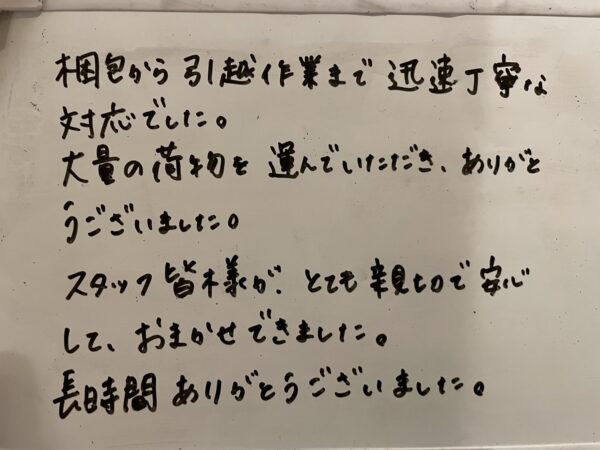 梱包から引越作業まで 迅速丁寧な
対応でした。
大量の荷物を 運んでいただき、ありがと
うございました。
スタッフ皆様が、とても親切で安心
して、おまかせできました。
長時間ありがとうございました。